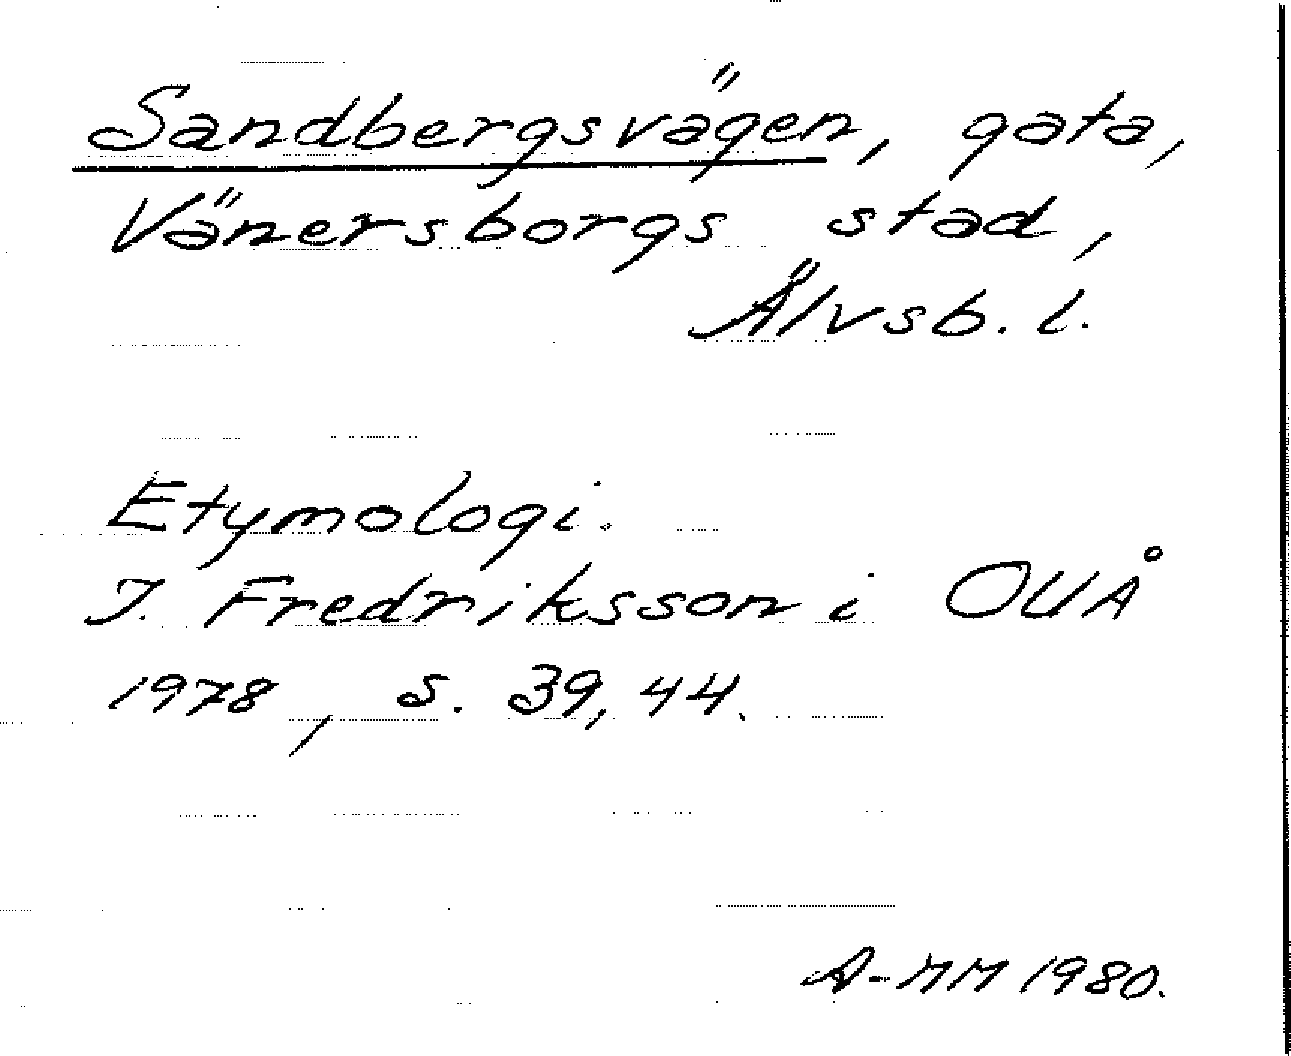 Sandbergsvägen, gata,
Vänersborgs stad,
Älvsb. l.
Etymologi.
I. Fredriksson i OUÅ
1978, s. 39, 44.
A-MM 1980.